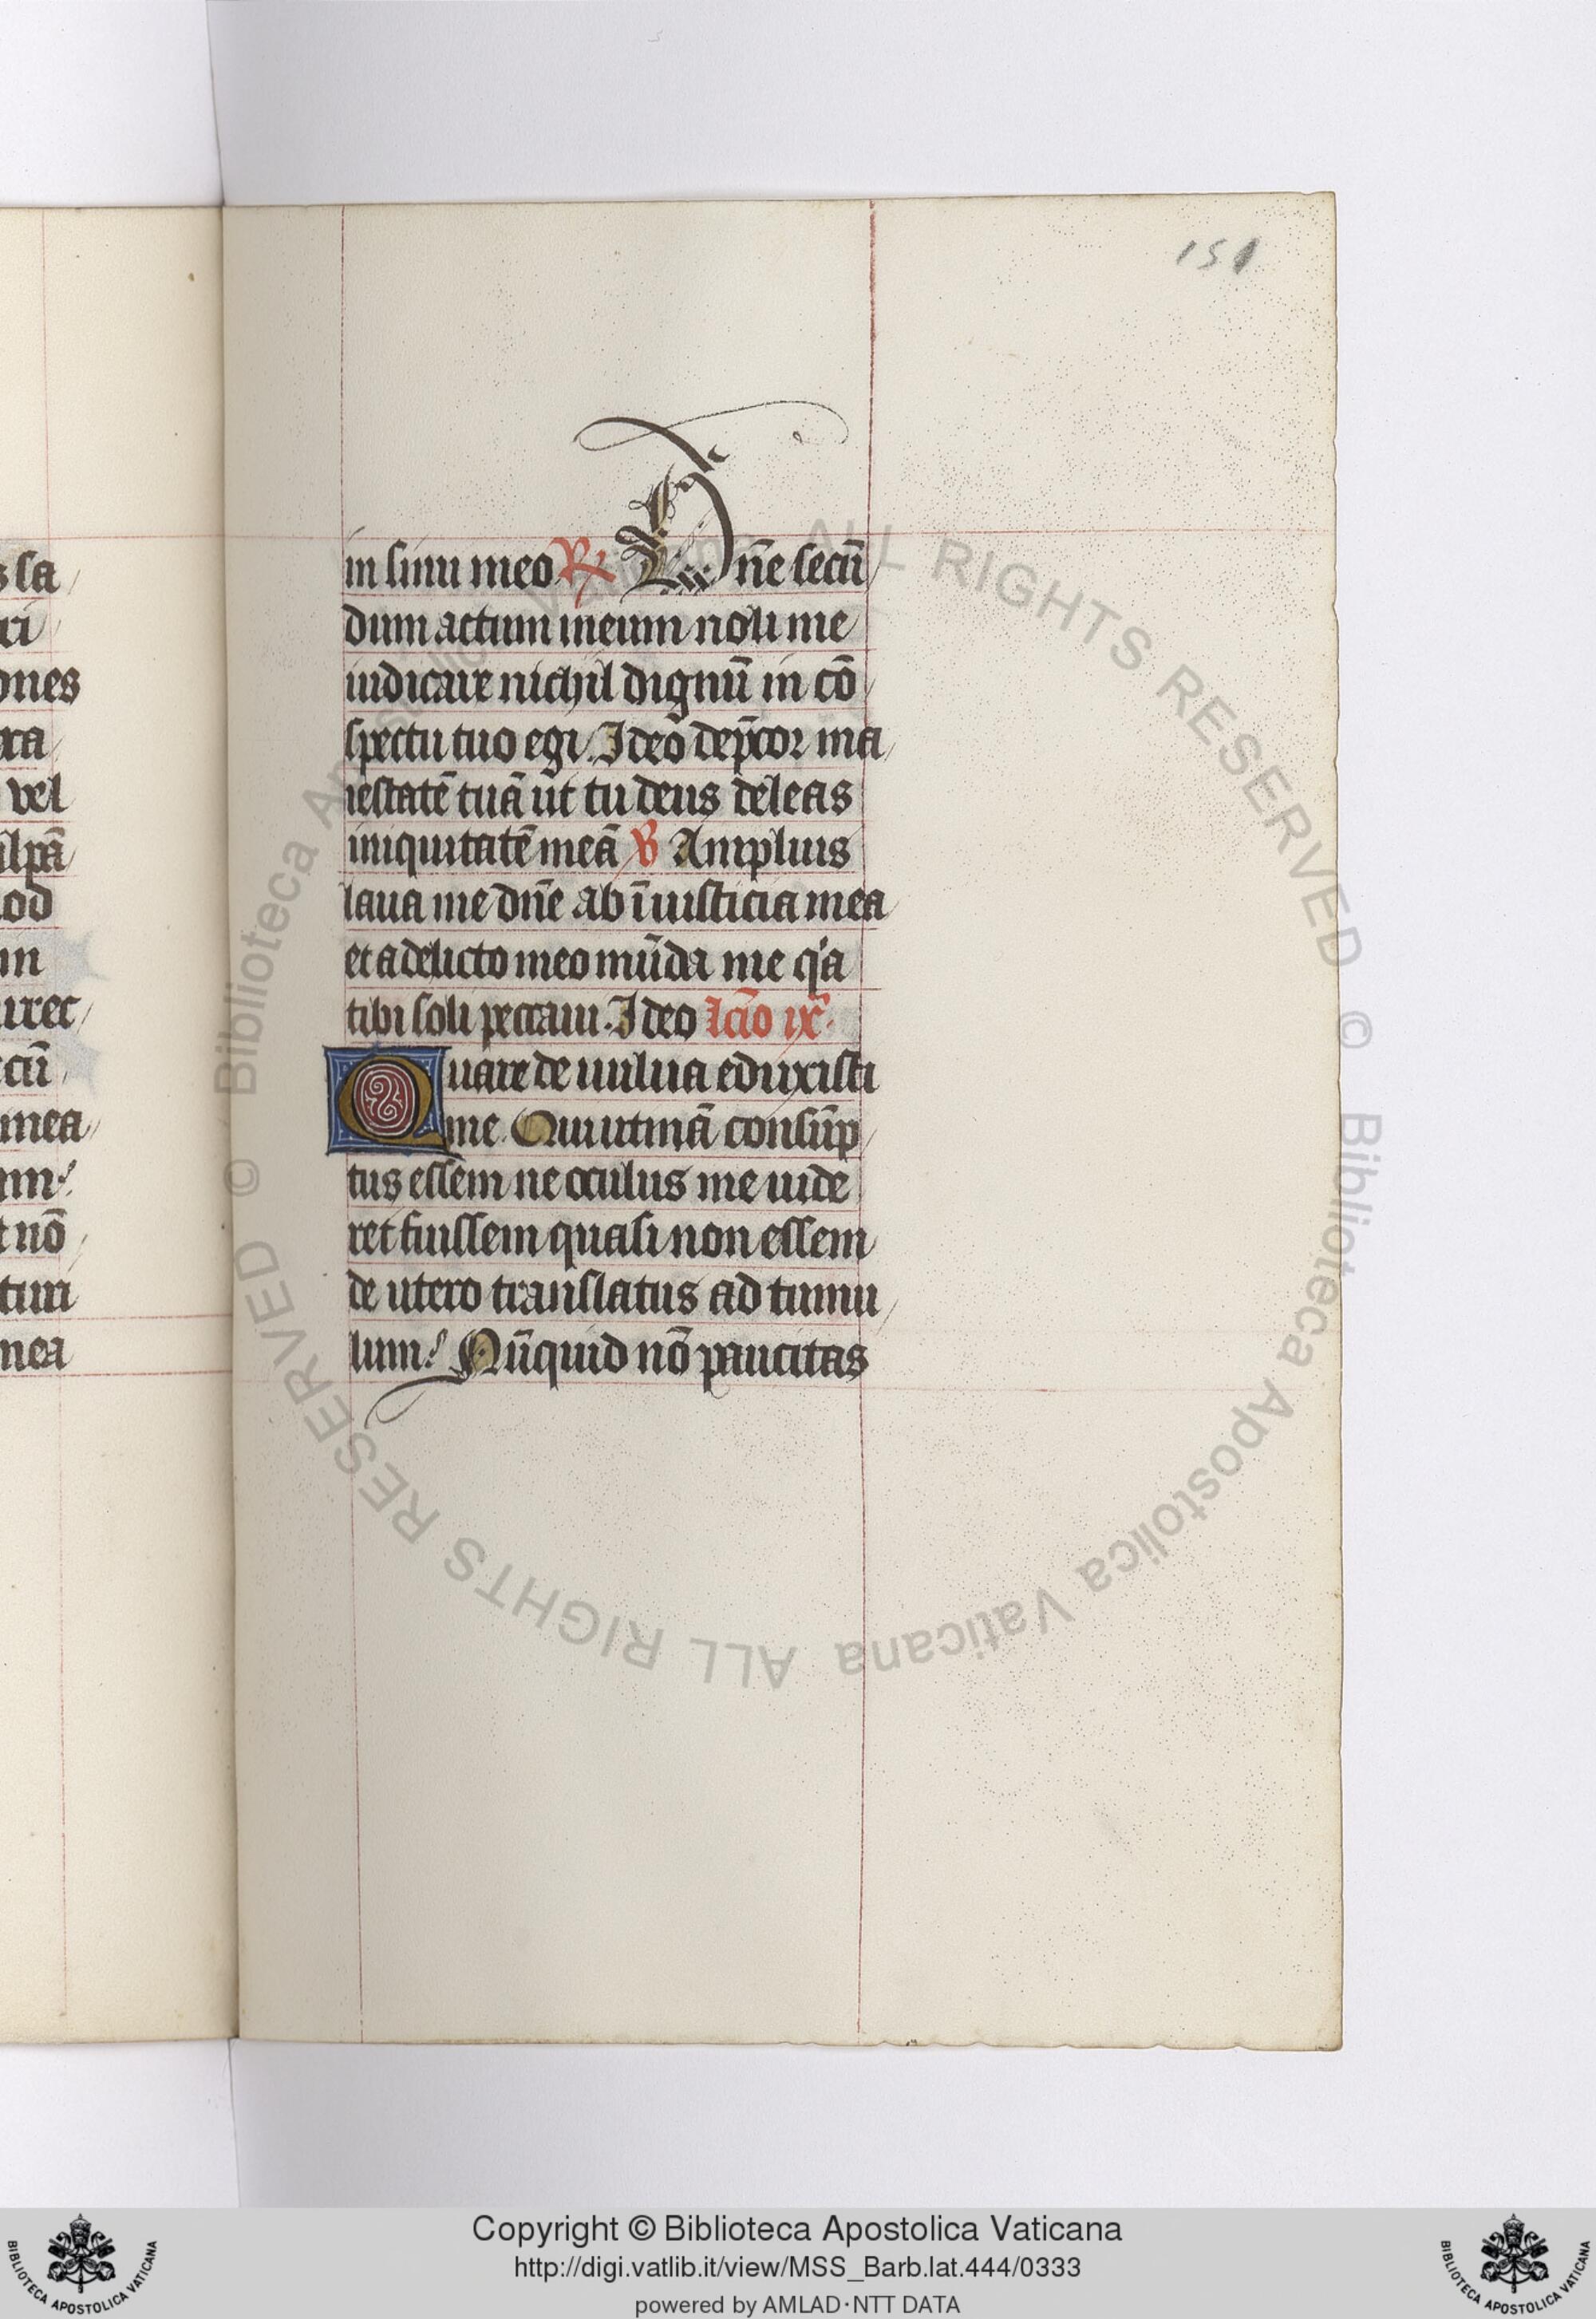 151
s sa
ri
ones
xa
vel
ulpā
od
in
urrec
cū
mea
um
t nō
turi
mea
in sinu meo R Dn̄e secū
dum actum meum noli me
iudicare nichil dignū in cō
spectu tuo egi. Ideo dep̄cor ma
iestatē tuā ut tu deus deleas
iniquitatē meā V Amplius
laua me dn̄e ab īiusticia mea
et a delicto meo mūda me q'a
tibi soli peccaui. Ideo lcīo ix
Quare de uulua eduxisti
me. Qui utinā consūp
tus essem ne oculus me uide
ret fuissem quasi non essem
de utero translatus ad tumu
lum. Nūquid nō paucitas
© Biblioteca Apostolica Vaticana ALL RIGHTS RESERVED
© Biblioteca Apostolica Vaticana ALL RIGHTS RESERVED
Copyright © Biblioteca Apostolica Vaticana
http://digi.vatlib.it/view/MSS_Barb.lat.444/0333
powered by AMLAD·NTT DATA
BIBLIOTECA APOSTOLICA VATICANA
BIBLIOTECA APOSTOLICA VATICANA